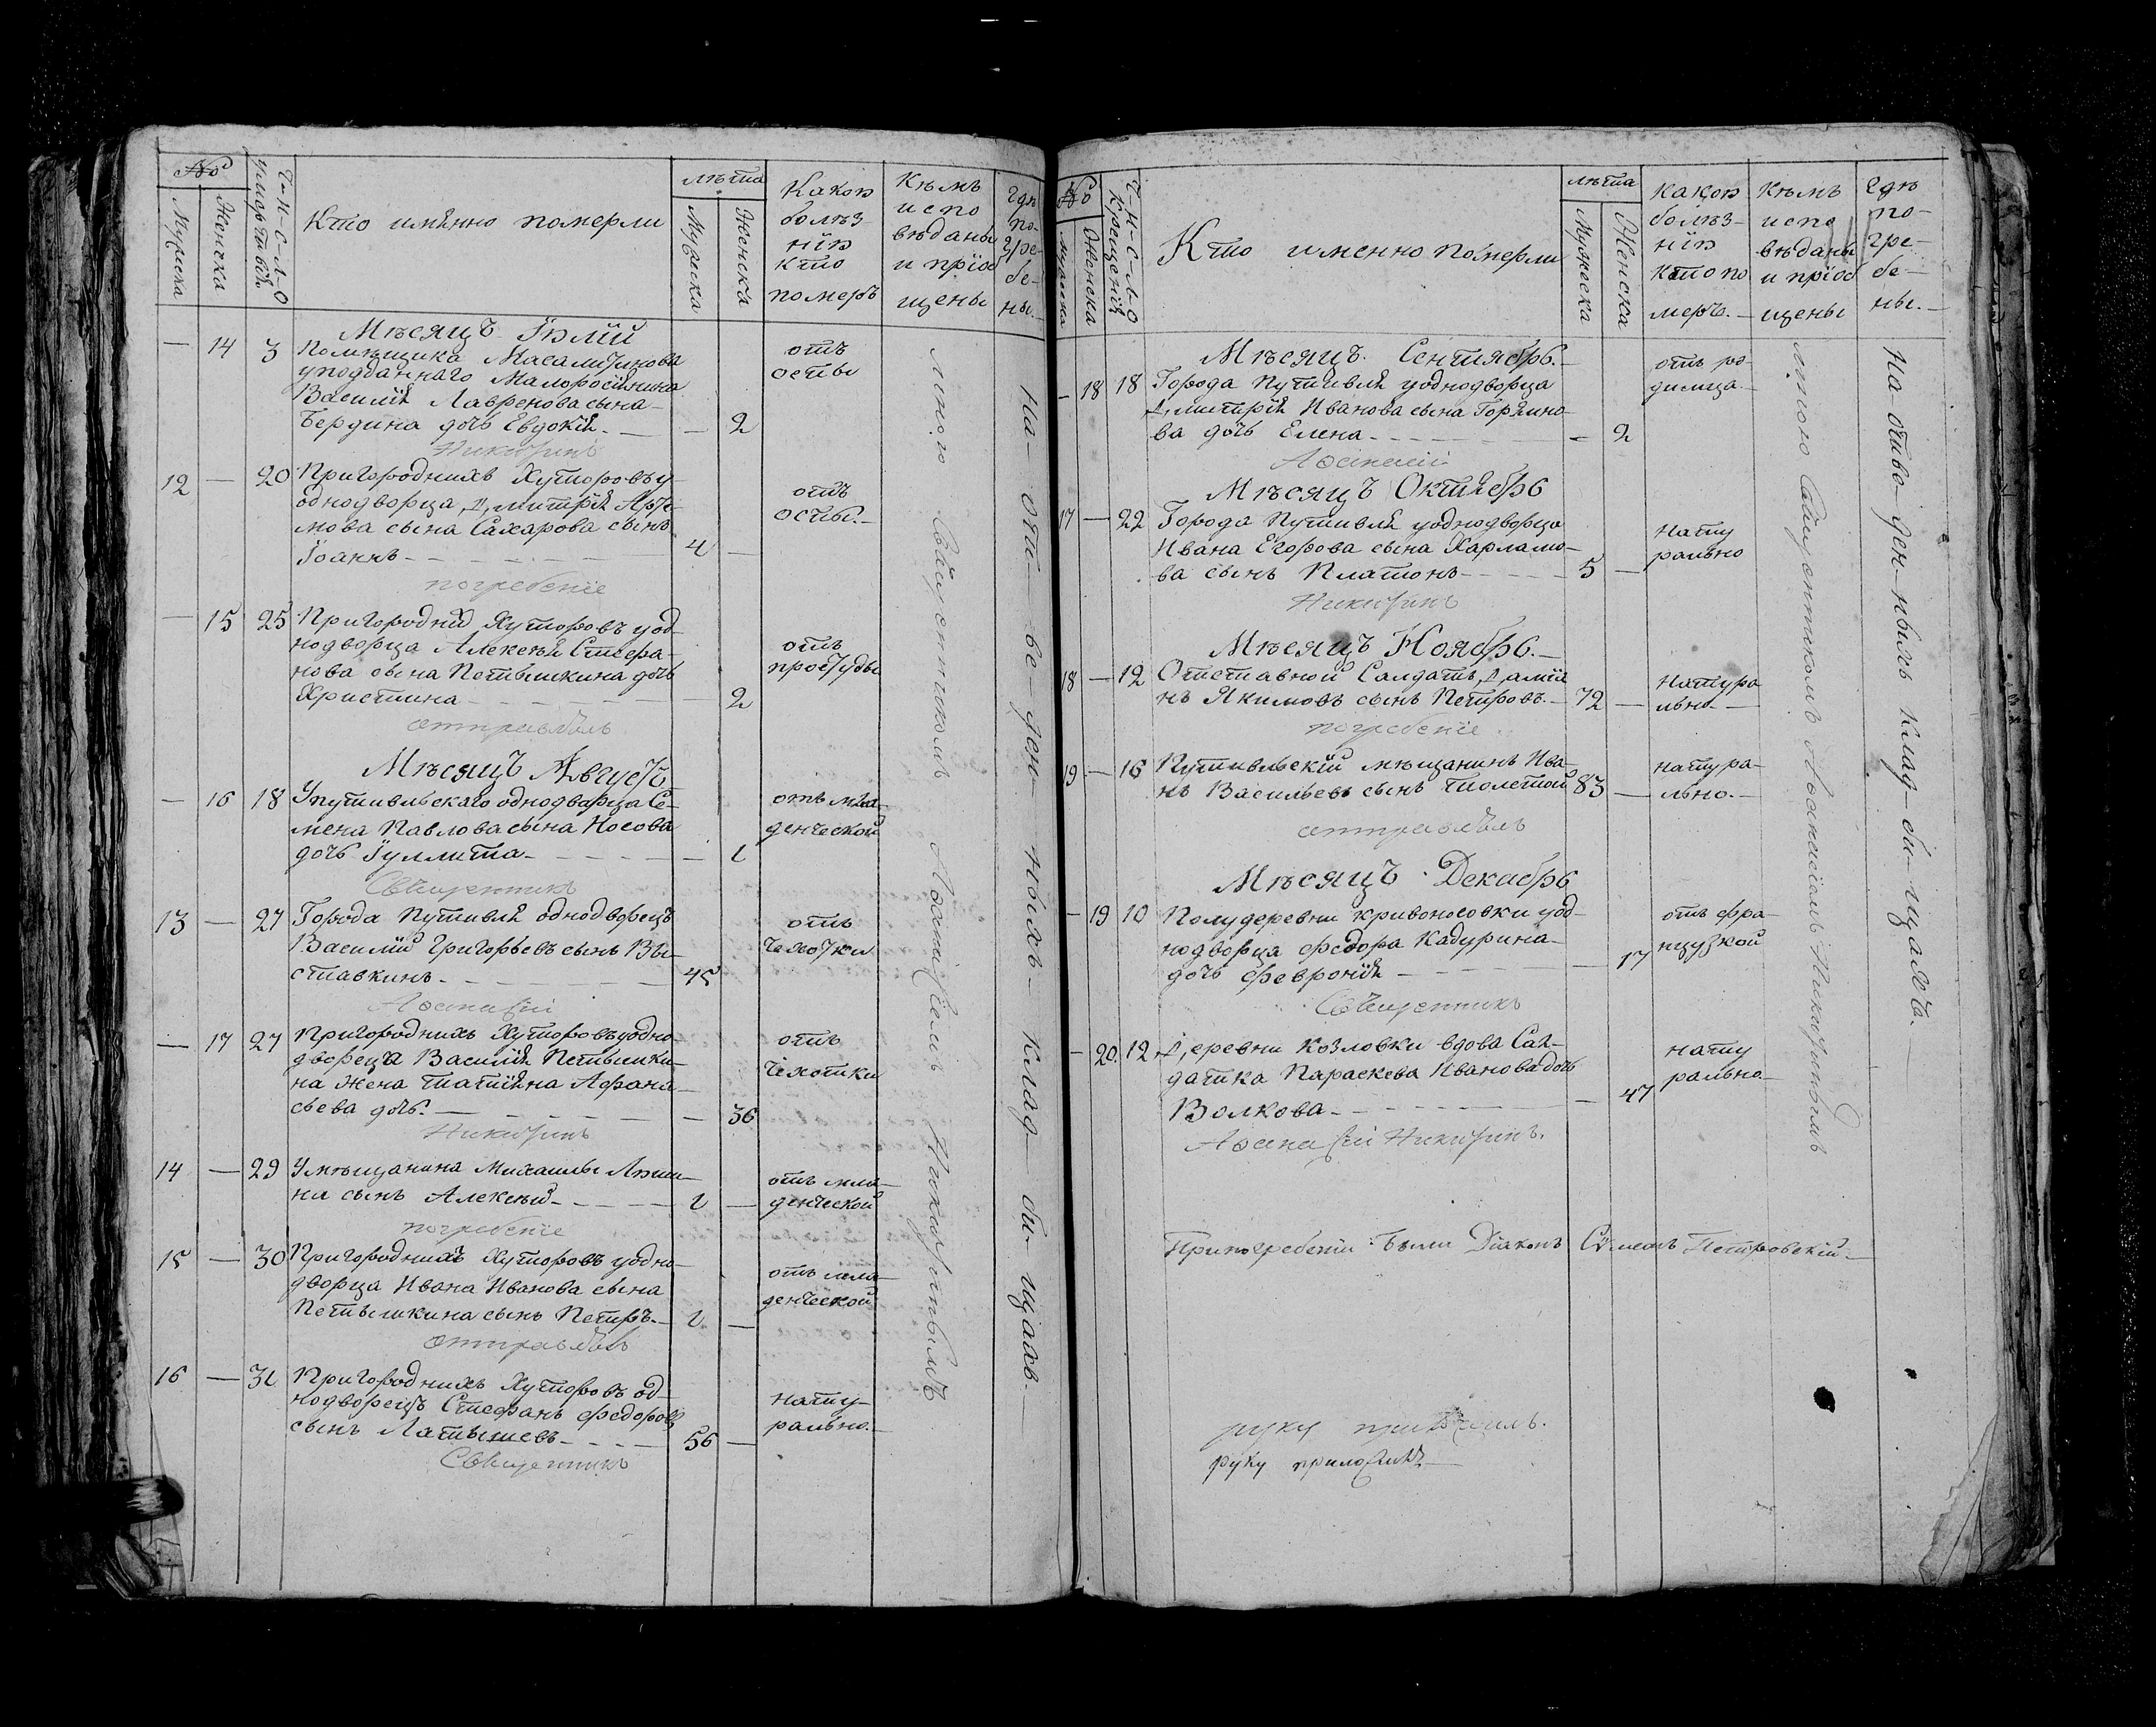 №
Мужеска
Женска
Ч-И-С-Л-О
умертвій.
Кто имянно померли
лѣта
Мужеска
Женска
Какою
болѣз-
нію
кто
померъ
Кѣмъ
испо
вѣданы
и пріоб
щены
Гдѣ
по-
гре-
бе-
ны.
Мѣсяцъ Іюлій
— 14 3 Помѣщика Масалитинова
уподданнаго Малоросіянина
Василія Лавренова сына
Бердина дочь Евдокія. — — 2
отъ
оспы
Никитинъ
12 — 20 Пригороднихъ Хуторовъ у
однодворца Дмитрія Арте-
мова сына Сахарова сынъ
Іоаннъ - - - 4 —
отъ
оспы.-
погребеніе
— 15 25 Пригородних Хуторовъ у од-
нодворца Алексѣя Стефа-
нова сына Петышкина дочь
Христина - - - 2
отъ
простуды
отправлялъ
Мѣсяцъ Августъ
— 16 18 У путивльскаго однодворца Се-
мена Павлова сына Носова
дочь Іуллита - - - — 1
отъ мла-
денческой
Священникъ
13 — 27 Города Путивля однодворецъ
Василій Григорьевъ сынъ Вы-
ставкинъ. - - - 45
отъ
чехотки
Аѳанасій
— 17 27 Пригороднихъ Хуторовъ уодно-
двореца Василія Петышки-
на жена Татіяна Афана-
сьева дочь. — — 36
отъ
чехотки
Никитинъ
14 — 29 У мѣщанина Михаилы
на сынъ Алексѣй - - - 1 —
отъ мла-
денческой
погребеніе
15 — 30 Пригороднихъ Хуторовъ у одно-
дворца Ивана Иванова сына
Петышкина сынъ Петръ. — 1 —
отъ мла-
денческой
отправлялъ
16 — 31 Пригороднихъ Хуторовъ од-
нодворецъ Стефанъ Федоровъ
сынъ Латышевъ - - - 56 —
нату-
рально.-
Священникъ
Мною Священникомъ Аѳанасіемъ Никитинымъ
На- отъ- ве- ден- ныхъ- клад- би- щахъ.
№
Мужеска
Женска
Ч-И-С-Л-О
Крещеній
Кто именно померли
лѣта
Мужеска
Женска
какою
болѣз-
нію
кто по
меръ.
Кѣмъ
испо
вѣданы
и пріоб
щены
Гдѣ
по-
гре-
бе-
ны.
Мѣсяцъ. Сентябрь.
— 18 18 Города Путивля уоднодворца
Дмитрія Иванова сына Горяино-
ва дочь Елена - - - — 2
отъ ро-
димца.
Аѳанасій
Мѣсяцъ Октябрь
17 — 22 Города Путивля уоднодворца
Ивана Егорова сына Харламо-
ва сынъ Платонъ - - - 5 —
нату
рально
Никитинъ
Мѣсяцъ Ноябрь.
18 — 12 Отставной Салдатъ Даміа
нъ Якимовъ сынъ Петровъ. — 72 —
натура
льно.-
погребеніе
19 — 16 Путивльскій мѣщанинъ Ива-
нъ Васильевъ сынъ Толстой 83 —
натура-
льно.-
отправлялъ
Мѣсяцъ Декабрь
— 19 10 Полудеревни Кривоносовки уод-
нодворца Федора Кадурина
дочь Февронія - - - — 17
отъ фра-
нцузкой
Священникъ
— 20. 12 Деревни Козловки вдова Сал-
датка Параскева Иванова дочь
Волкова. - - - — 47
нату
рально.-
Аѳанасій Никитинъ.
При погребеніи были Діаконъ Сѵмеонъ Петровскій
руку приложилъ.
руку приложилъ
Мною Священникомъ Аѳанасіемъ Никитинымъ
На отве- ден- ныхъ клад- би- щахъ.